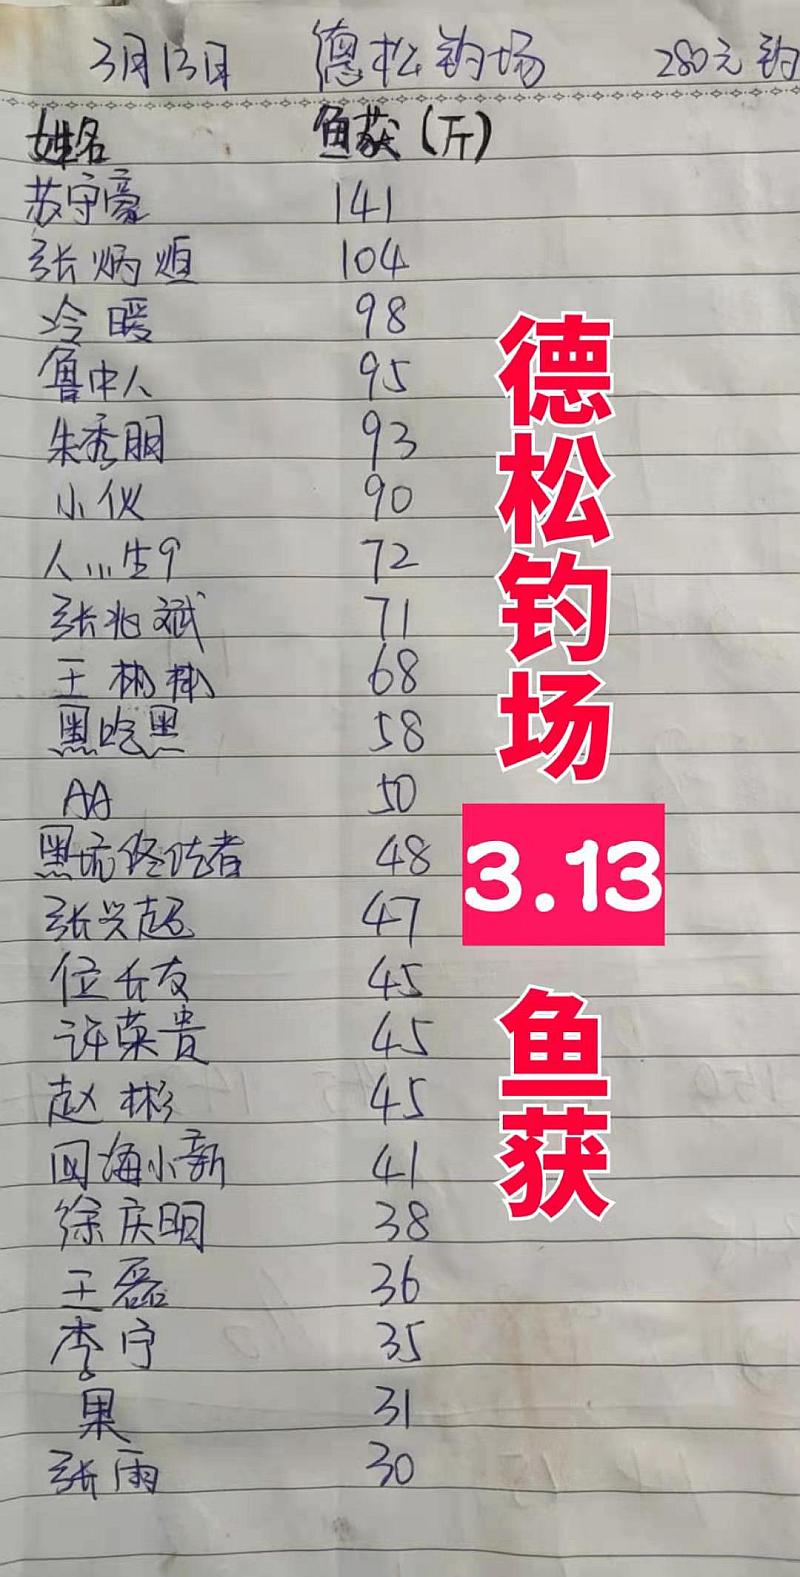 3月13日 德松钓场 280元钓
姓名 鱼获(斤)
苏守豪 141
张炳烜 104
冷暖 98
鲁中人 95
朱秀朋 93
小伙 90
人川生9 72
张兆斌 71
王彬彬 68
黑吃黑 58
AA 50
黑坑终结者 48
张兴起 47
位长友 45
许荣贵 45
赵彬 45
四海小新 41
徐庆明 38
王磊 36
李宁 35
果 31
张雨 30
德松钓场
3.13
鱼获